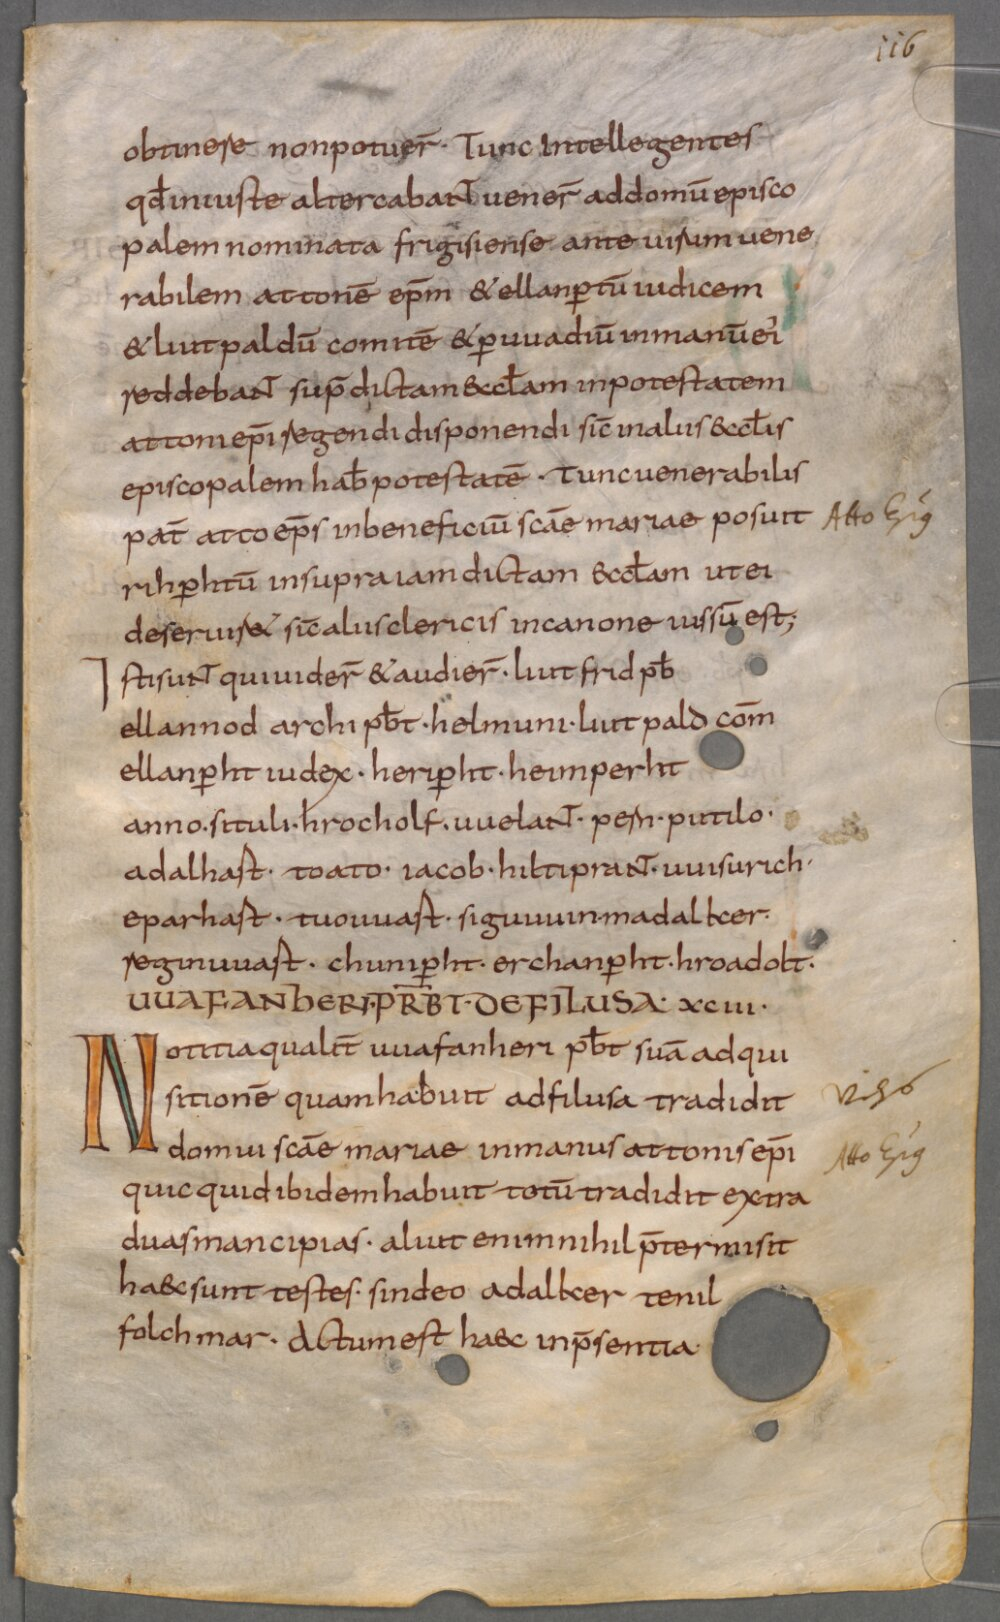 116
obtinere non potuer̄. Tunc intellegentes
qd̄ iniuste altercabant uener̄ ad domū episco
palem nominata frigisiense ante uisum uene
rabilem attonē ep̄m & ellanꝑtū iudicem
& liutpaldū comitē & ꝑ uuadiū in manū ei
reddebant sup̄dictam æccl̄am in potestatem
attoni ep̄i regendi disponendi sic̄ in aliis æccl̄is
episcopalem hab̄ potestatē. Tunc uenerabilis
pat̄ atto ep̄s in beneficiū sc̄ae mariae posuit
Atto Ep̄s
rihꝑhtū in supra iam dictam æccl̄am ut ei
deseruir& sic̄ aliis clericis in canone iussū est;
Isti sunt qui uider̄ & audier̄. liutfrid pb̄
ellannod archi pb̄t. helmuni. liutpald com̄
ellanꝑht iudex. heriꝑht. heimperht
anno. situli. hrocholf. uuelant. pern. putilo.
adalhast. toato. iacob. hiltiprant. uuisurich.
eparhast. tuouuast. siguuuin. madalker.
reginuuast. chuniꝑht. erchanꝑht. hroadolt.
UUAFANHERI. PRB̄T. DE FILUSA. xciii.
Notitia qualit̄ uuafanheri pb̄t suā adqui
sitionē quam habuit ad filusa tradidit
domui sc̄ae mariae in manus attonis ep̄i
quicquid ibidem habuit totū tradidit extra
duas mancipias. aliut enim nihil p̄termisit
haec sunt testes. sindeo adalker tenil
folchmar. Actum est haec in p̄sentia.